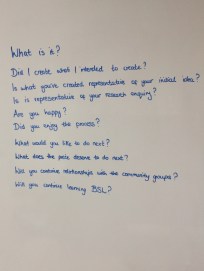 What is it?
Did I create what I intended to create?
Is what you've created representative of your initial idea?
Is it representative of your research enquiry?
Are you happy?
Did you enjoy the process?
What would you like to do next?
What does the piece deserve to do next?
Will you continue relationships with the community groups?
Will you continue learning BSL?